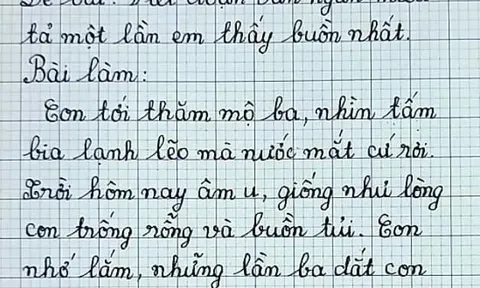 Đề bài: Viết đoạn văn ngắn miêu
tả một lần em thấy buồn nhất.
Bài làm:
Con tới thăm mộ ba, nhìn tấm
bia lạnh lẽo mà nước mắt cứ rơi.
Trời hôm nay âm u, giống như lòng
con trống rỗng và buồn tủi. Con
nhớ lắm, những lần ba dắt con